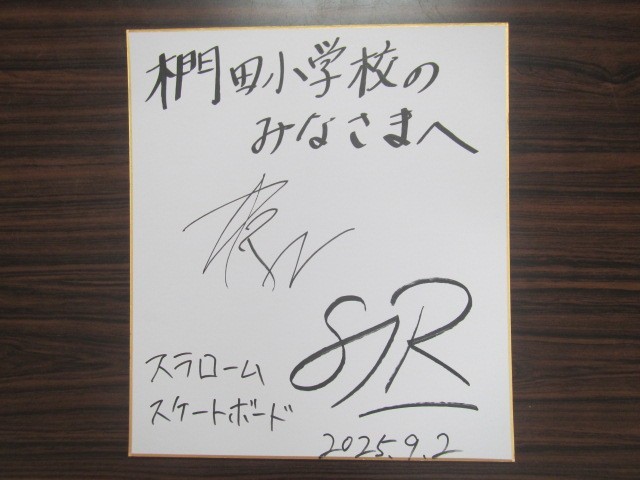 椚田小学校の
みなさまへ
スラローム
スケートボード
2025.9.2